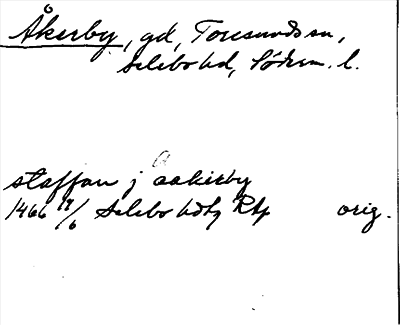 Åkerby, gd, Toresunds sn,
Selebo hd, Söderm. l.
staffan j aakirby
1466 18/6 Selebo hdtg Rtp orig.